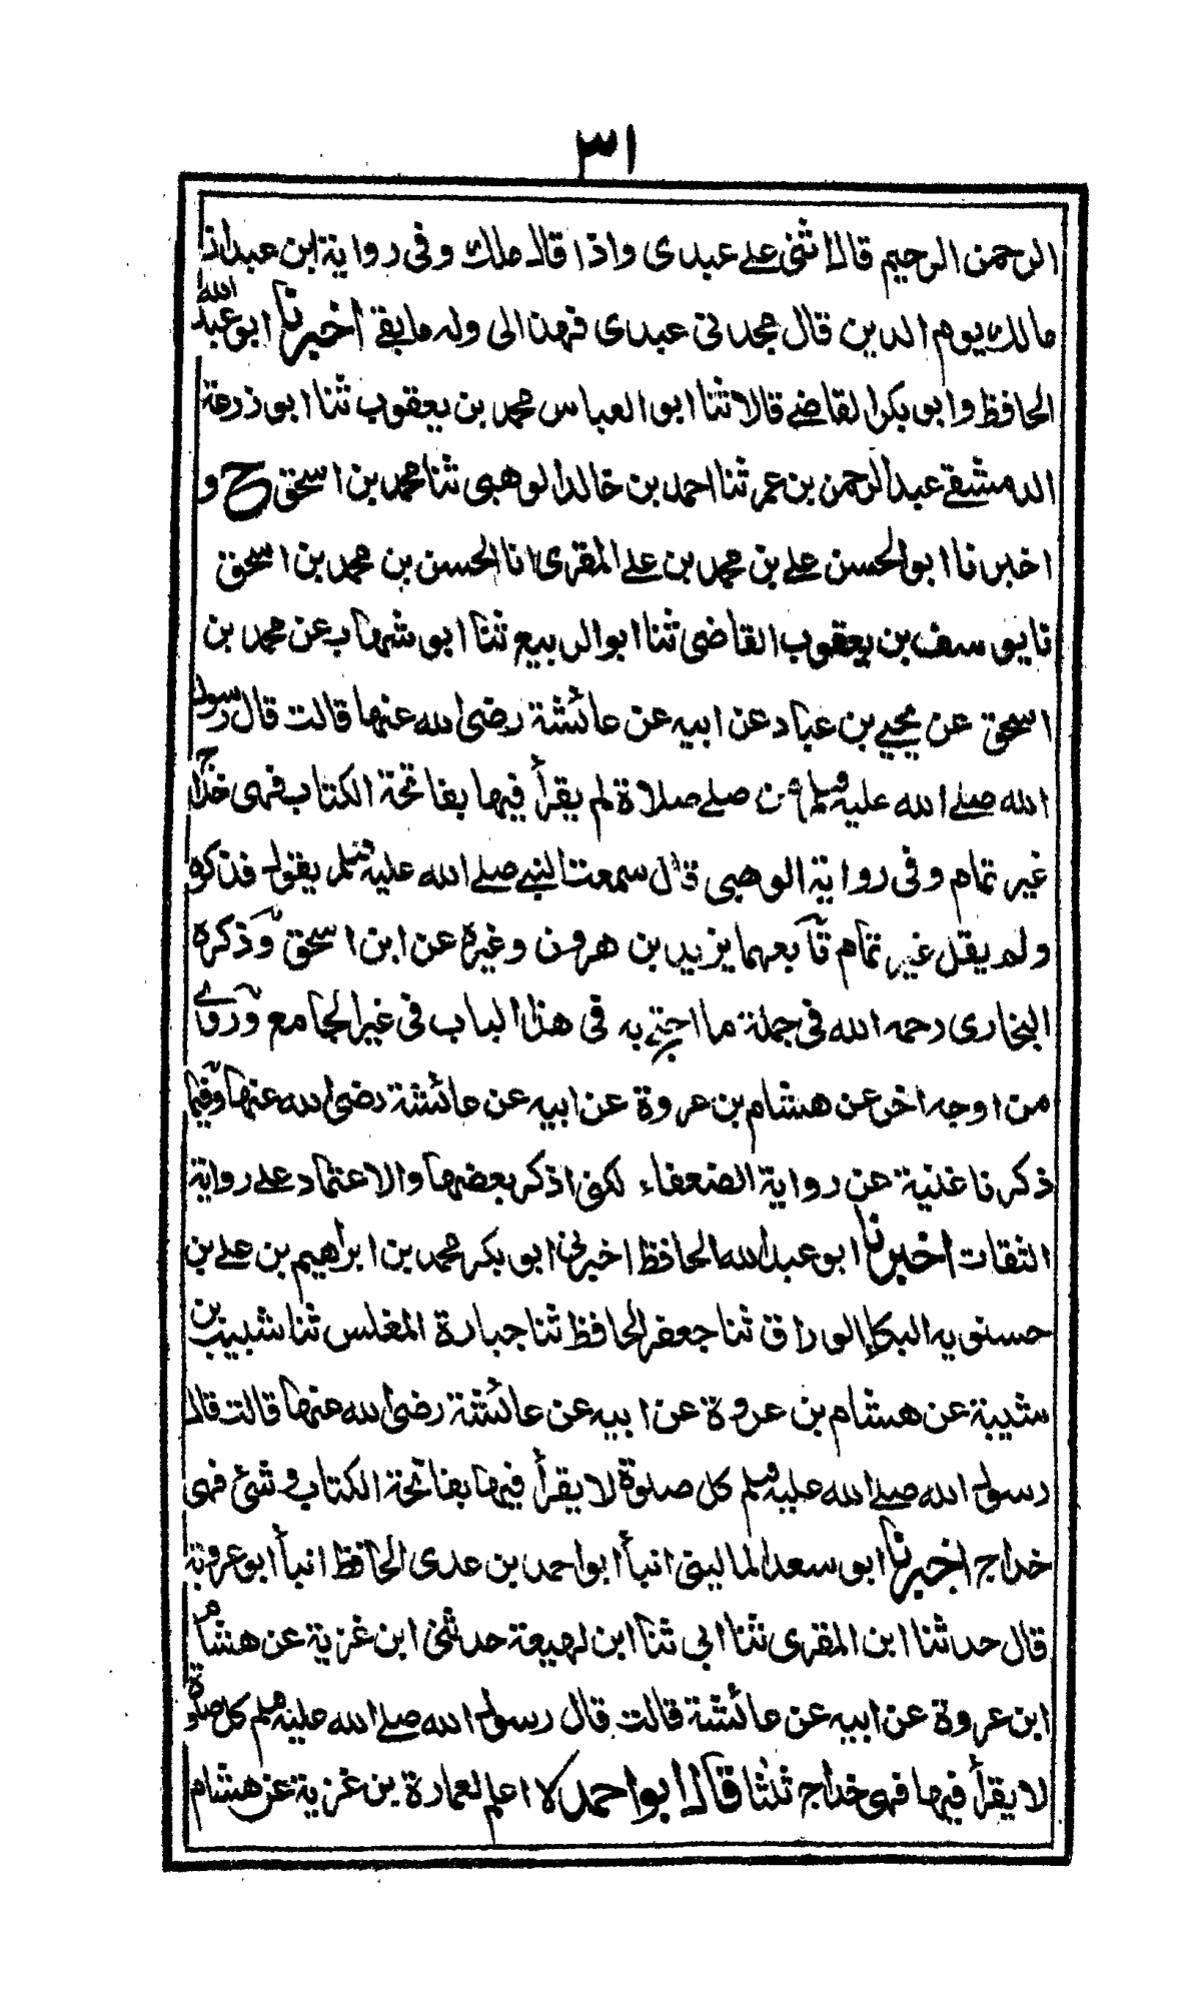 ٣١
الرحمن الرحيم قال اثنى علي عبدى واذا قال ملك وفى رواية ابن عبدان
مالك يوم الدين قال مجدنى عبدى فهذا لى وله ما بقے اخبرنا ابو عبد الله
الحافظ وابو بكر القاضے قالا ثنا ابو العباس محمد بن يعقوب ثنا ابو زرعة
الدمشقے عبد الرحمن بن عمر ثنا احمد بن خالد الوهبى ثنا محمد بن اسحق ح و
اخبرنا ابو الحسن علے بن محمد بن علے المقرى انا الحسن بن محمد بن اسحق
نا يوسف بن يعقوب القاضى ثنا ابو الربيع ثنا ابو شهاب عن محمد بن
اسحق عن يحيے بن عباد عن ابيه عن عائشة رضى الله عنها قالت قال رسول
الله صلے الله عليه وسلم من صلے صلاة لم يقرأ فيها بفاتحة الكتاب فهى خداج
غير تمام وفى رواية الوهبى قال سمعت النبے صلے الله عليه وسلم يقول فذكره
ولم يقل غير تمام تابعهما يزيد بن هرون وغيره عن ابن اسحق وذكره
البخارى رحمه الله فى جملة ما احتج به فى هذا الباب فى غير الجامع وروے
من اوجه اخر عن هشام بن عروة عن ابيه عن عائشة رضى الله عنها وفيما
ذكرنا غنية عن رواية الضعفاء لكنى اذكر بعضها والاعتماد على رواية
الثقات اخبرنا ابو عبد الله الحافظ اخبرنى ابو بكر محمد بن ابراهيم بن علے بن
حسنويه البكاء الوراق ثنا جعفر الحافظ ثنا جبارة المغلس ثنا شبيب بن
شيبة عن هشام بن عروة عن ابيه عن عائشة رضى الله عنها قالت قال
رسول الله صلے الله عليه وسلم كل صلوة لا يقرأ فيها بفاتحة الكتاب وشئ فهى
خداج اخبرنا ابو سعد المالينى انبأ ابو احمد بن عدى الحافظ انبأ ابو عروبة
قال حدثنا ابن المقرى ثنا ابى ثنا ابن لهيعة حدثنى ابن غزية عن هشام
ابن عروة عن ابيه عن عائشة قالت قال رسول الله صلے الله عليه وسلم كل صلوة
لا يقرأ فيها فهى خداج ثلثا قال ابو احمد لا اعلم لعمارة بن غزية عن هشام